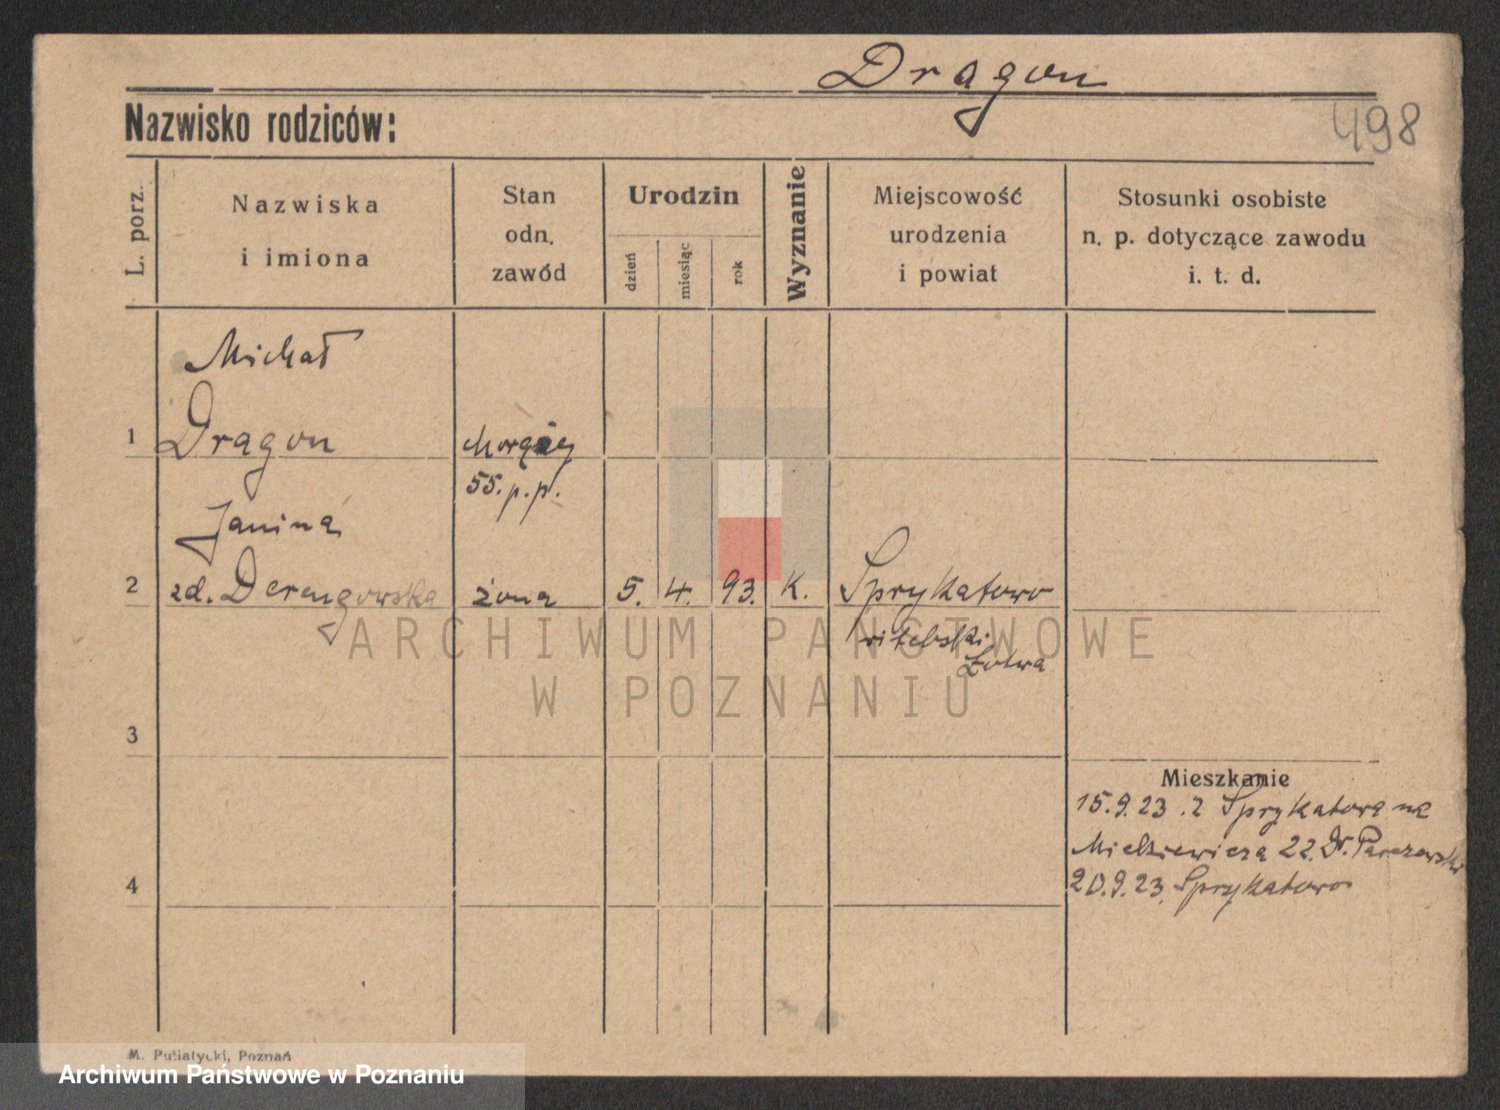 Dragon
Nazwisko rodziców:
498
L. porz.
Nazwiska
i imiona
Stan
odn.
zawód
Urodzin
dzień
miesiąc
rok
Wyznanie
Miejscowość
urodzenia
i powiat
Stosunki osobiste
n. p. dotyczące zawodu
i. t. d.
Michał
1 Dragon
55. p. p.
Janina
2 zd. żona 5. 4. 93. K. Sprykatowo
witebski
Łotwa
ARCHIWUM PAŃSTWOWE
W POZNANIU
3
Mieszkanie
15.9.23. z Sprykatowa na
Mickiewicza 22. Dr.
4 20.9.23. Sprykatowo
M. Putiatycki, Poznań
Archiwum Państwowe w Poznaniu